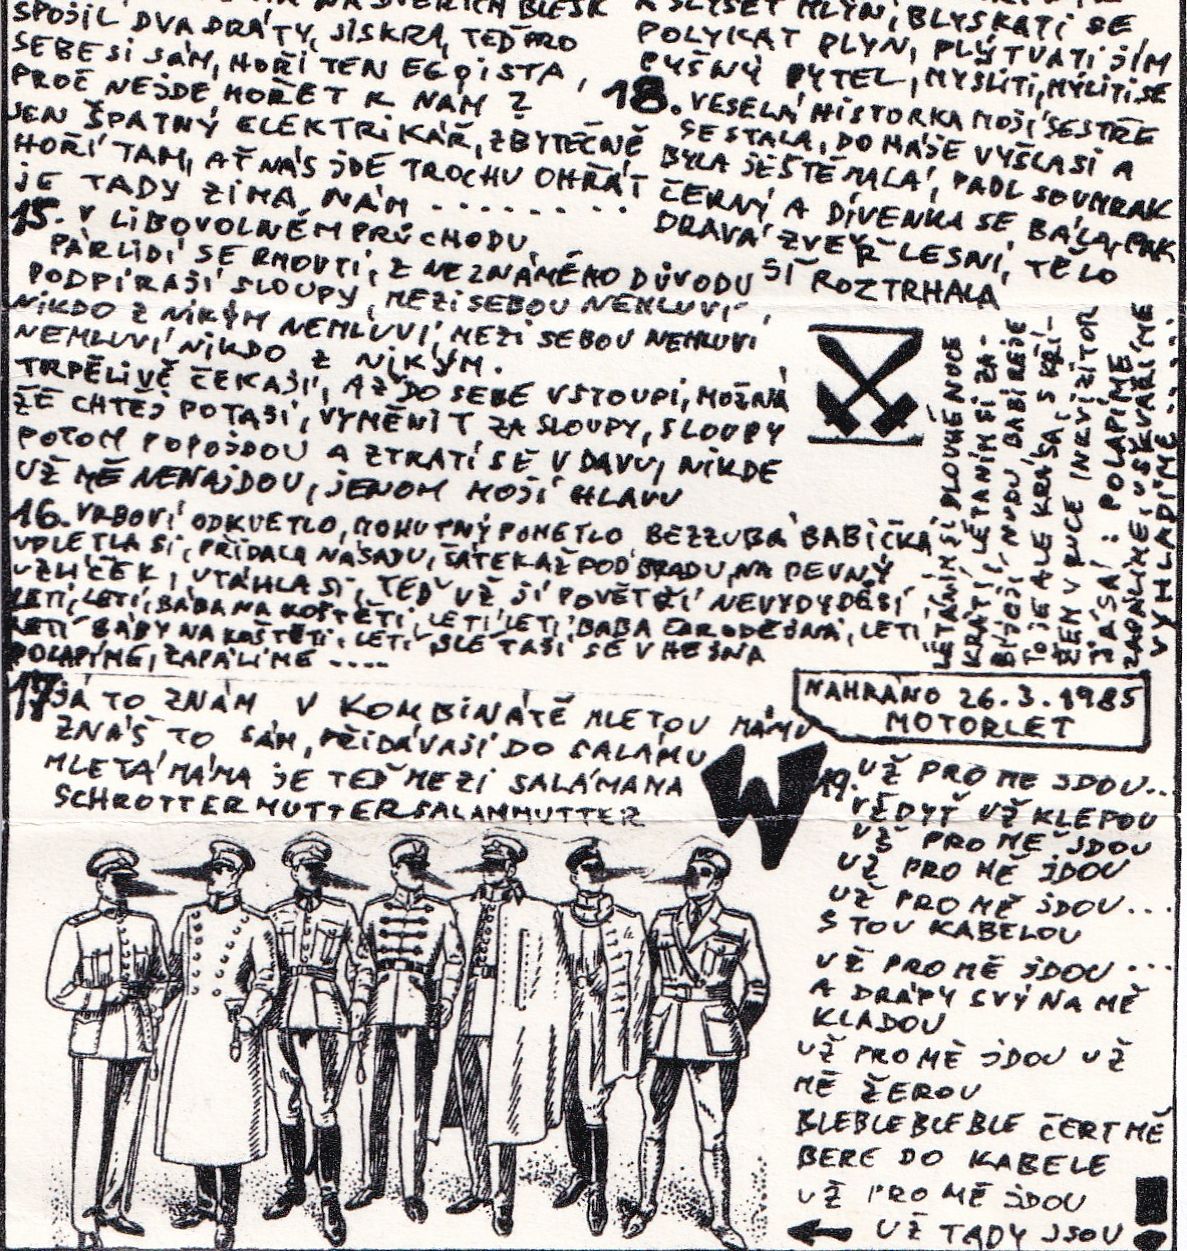 SPOJIL DVA DRÁTY, JISKRA, TEĎ PRO
SEBE SI SÁM, HOŘÍ TEN EGOISTA,
PROČ NEJDE HOŘET K NÁM?
JEN ŠPATNÝ ELEKTRIKÁŘ, ZBYTEČNĚ
HOŘÍ TAM, AŤ NÁS JDE TROCHU OHŘÁT
JE TADY ZIMA NÁM . . . . . . . .
15. V LIBOVOLNÉM PRŮCHODU,
PÁR LIDÍ SE RMOUTÍ, Z NEZNÁMÉHO DŮVODU
PODPÍRAJÍ SLOUPY, MEZI SEBOU NEMLUVÍ,
NIKDO Z NIKÝM NEMLUVÍ, MEZI SEBOU NEMLUVÍ
NEMLUVÍ NIKDO Z NIKÝM.
TRPĚLIVĚ ČEKAJÍ, AŽ DO SEBE VSTOUPÍ, MOŽNÁ
ŽE CHTĚJ POTAJÍ, VYMĚNIT ZA SLOUPY, SLOUPY
POTOM POPOJDOU A ZTRATÍ SE V DAVU, NIKDE
UŽ MĚ NENAJDOU, JENOM MOJÍ HLAVU
16. VRBOVÍ ODKVETLO, MOHUTNÝ POMETLO BEZZUBÁ BABIČKA
VPLETLA SI, PŘIDALA NÁSADU, ŠÁTEK AŽ POD BRADU, NA PEVNÝ
UZLÍČEK, UTÁHLA SI, TEĎ UŽ JÍ POVĚTŘÍ NEVYDYDĚSÍ
LETÍ, LETÍ, BÁBA NA KOŠTĚTI, LETÍ LETÍ BABA ČARODĚJNÁ, LETÍ
LETÍ BÁBY NA KOŠTĚTI, LETÍ SLÉTAJÍ SE V HEJNA
POLAPÍME, ZAPÁLÍME .....
17. JÁ TO ZNÁM V KOMBINÁTĚ MLETOU MÁMU
ZNÁŠ TO SÁM, PŘIDÁVAJÍ DO SALÁMU
MLETÁ MÁMA JE TEĎ MEZI SALÁMAMA
SCHROTTERMUTTERSALAMMUTTER
A SLYŠET MLÝN, BLÝSKATI SE
POLYKAT PLYN, PLÝTVATI JÍM
PYŠNÝ PYTEL, MYSLITI, MÝLITI SE
18. VESELÁ HISTORKA MOJÍ SESTŘE
SE STALA, DO HÁJE VYŠLA SI A
BYLA JEŠTĚ MALÁ, PADL SOUMRAK
ČERNÝ A DÍVENKA SE BÁLA, PAK
DRAVÁ ZVĚŘ LESNÍ, TĚLO
JÍ ROZTRHALA
LÉTÁNÍM SI DLOUHÉ NOCE
KRÁTÍ, LÉTÁNÍM SI ZA-
BÍJEJÍ, NUDU BABÍ REJE
TO JE ALE KRÁSA, S KŘÍ-
ŽEM V RUCE INKVIZITOR
JÁSÁ: POLAPÍME
ZAPÁLÍME, UŠKVAŘÍME
VYHLADÍME .....
NAHRÁNO 26.3.1985
MOTORLET
W
19. UŽ PRO MĚ JDOU...
VŽDYŤ UŽ KLEPOU
UŽ PRO MĚ JDOU
UŽ PRO MĚ JDOU
UŽ PRO MĚ JDOU...
S TOU KABELOU
UŽ PRO MĚ JDOU ...
A DRÁPY SVÝ NA MĚ
KLADOU
UŽ PRO MĚ JDOU UŽ
MĚ ŽEROU
BLEBLEBLEBLE ČERT MĚ
BERE DO KABELE
UŽ PRO MĚ JDOU
UŽ TADY JSOU